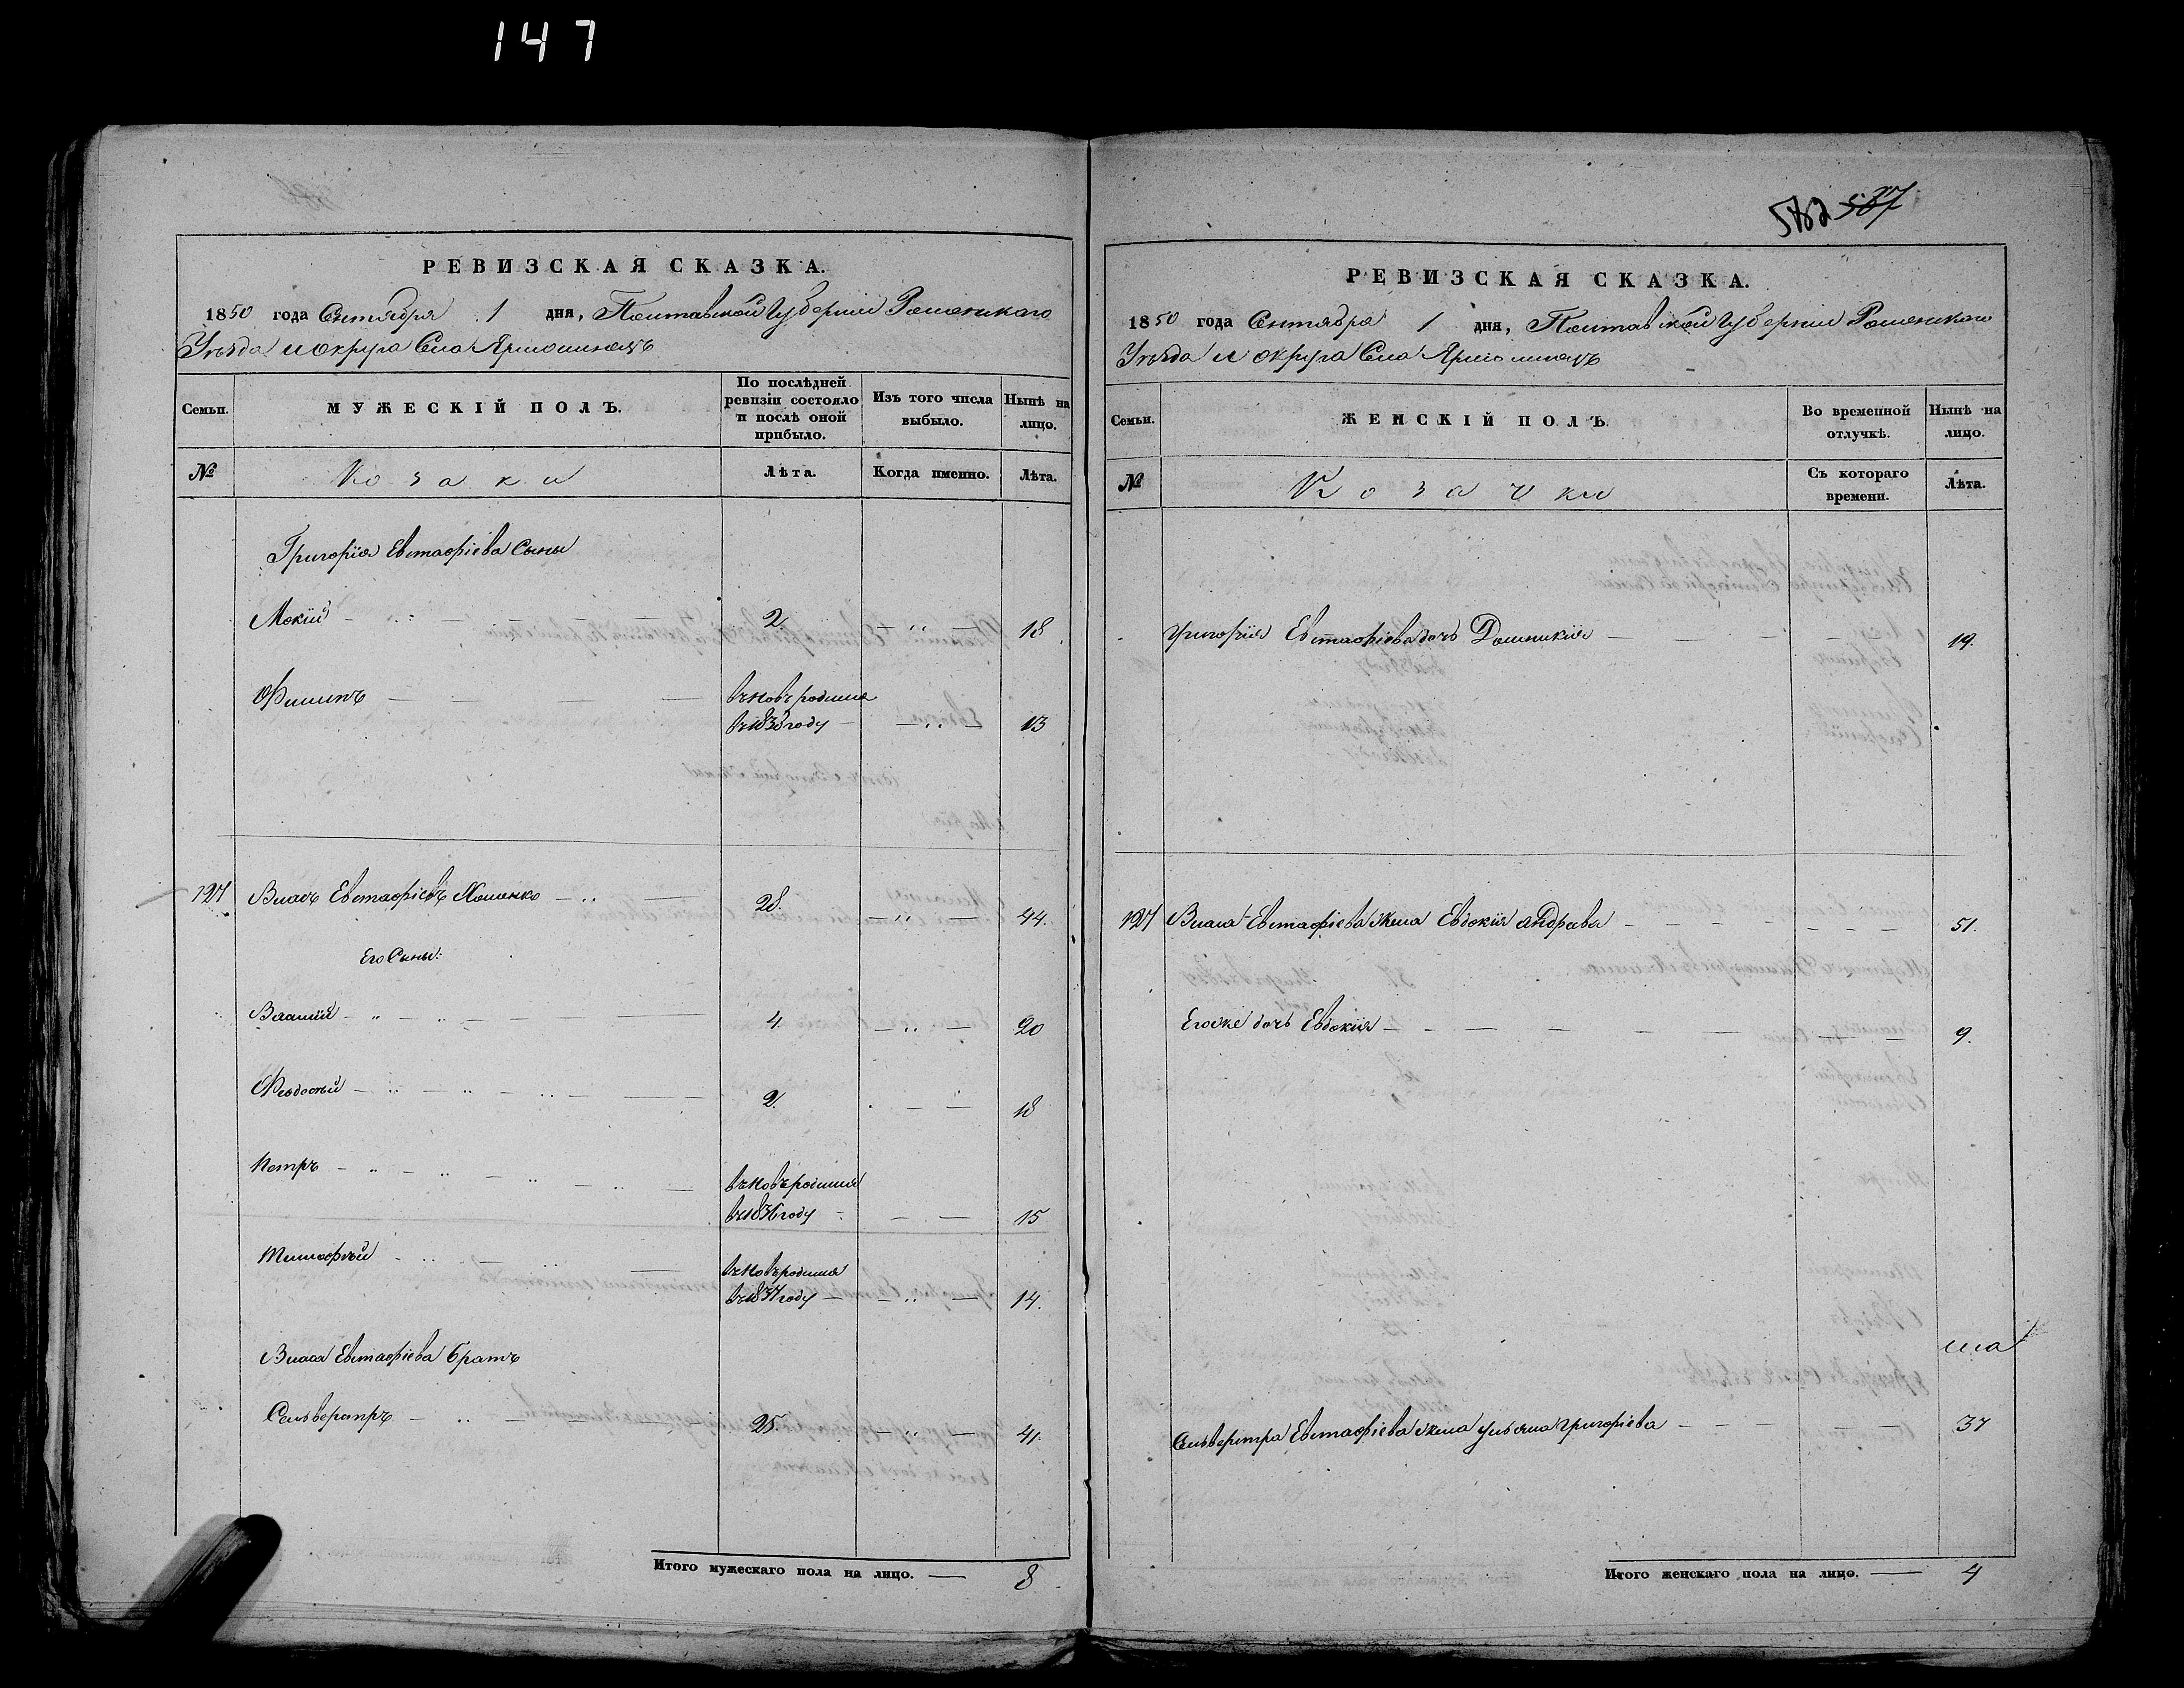 147
РЕВИЗСКАЯ СКАЗКА.
1850 года Сентября 1 дня, Полтавской Губернии Роменского
Уезда и округа Села Ярмолинец
Семьи. МУЖЕСКІЙ ПОЛЪ. По послѣдней ревизіи состояло и послѣ оной прибыло. Изъ того числа выбыло. Нынѣ на лицо.
№ Козаки Лѣта. Когда именно. Лѣта.
Григорія Евстафіева Сыны
Мокій 2 18
Филипъ вновь родился
въ 1838 году 13
127 Власъ Евстафіевъ Хоменко 28. 44.
Его Сыны:
Власій 4. 20
Феодосій 2. 18
Петръ вновь родился
въ 1836 году 15
Тимофѣй вновь родился
въ 1837 году 14.
Власа Евстафіева братъ
Сельверстръ 25. 41.
Итого мужескаго пола на лицо. 8
582 587
РЕВИЗСКАЯ СКАЗКА.
1850 года Сентября 1 дня, Полтавской Губернии Роменского
Уезда и округа Села Ярмолинец
Семьи. ЖЕНСКІЙ ПОЛЪ. Во временной отлучкѣ. Нынѣ на лицо.
№ Козачки Съ котораго времени. Лѣта.
Григорія Евстафіева дочь Домникия 19.
127 Власа Евстафіева жена Евдокия 51.
Его же дочь Евдокия 9.
Сельверстра Евстафіева жена Ульяна Григоріева 37
Итого женскаго пола на лицо. 4